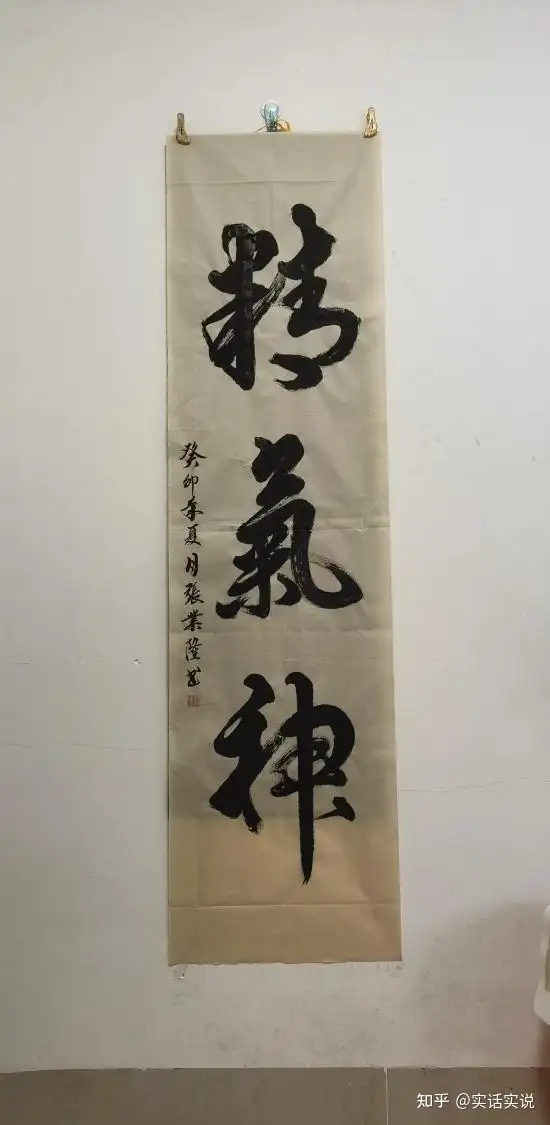 精氣神
癸卯年夏月張業隆书
知乎 @实话实说